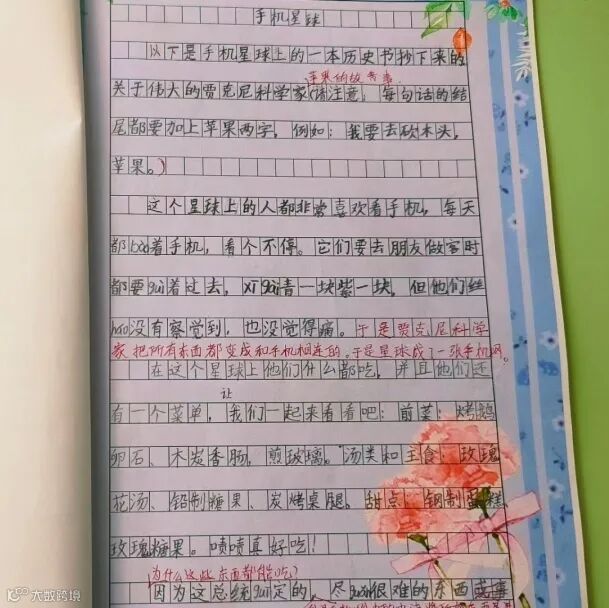 手机星球
以下是手机星球上的一本历史书抄下来的
苹果的故事
关于伟大的贾克尼科学家(请注意，每句话的结
尾都要加上苹果两字，例如：我要去砍木头，
苹果。)
这个星球上的人都非常喜欢看手机，每天
都bào着手机，看个不停。它们要去朋友做客时
都要guì着过去，xī gài青一块紫一块，但他们丝
háo没有察觉到，也没觉得痛。于是贾克尼科学
家把所有东西都变成和手机相连的。于是星球成了一张手机网。
在这个星球上他们什么都吃，并且他们还
让
有一个菜单，我们一起来看看吧：前菜：烤鹅
卵石、木炭香肠，煎玻璃。汤类和主食：玫瑰
花汤、铅制糖果、炭烤桌腿。甜点：钢制蛋糕，
玫瑰糖果。啧啧真好吃！
为什么这些东西都能吃？
因为这总统guī定的，尽guǎn很难的东西或事
大数跨境